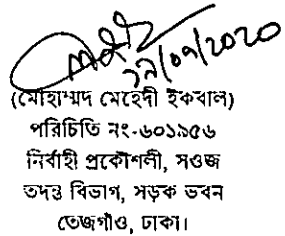 ২৯/০৭/২০২০
(মোহাম্মদ মেহেদী ইকবাল)
পরিচিতি নং-৬০১৯৫৬
নির্বাহী প্রকৌশলী, সওজ
তদন্ত বিভাগ, সড়ক ভবন
তেজগাঁও, ঢাকা।